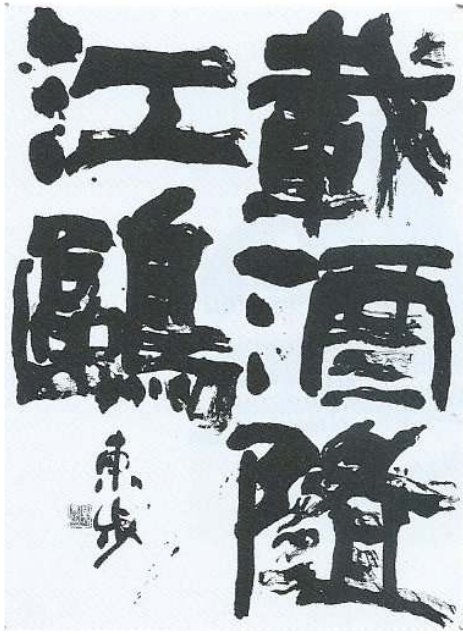 載酒隨
江鷗
東歩